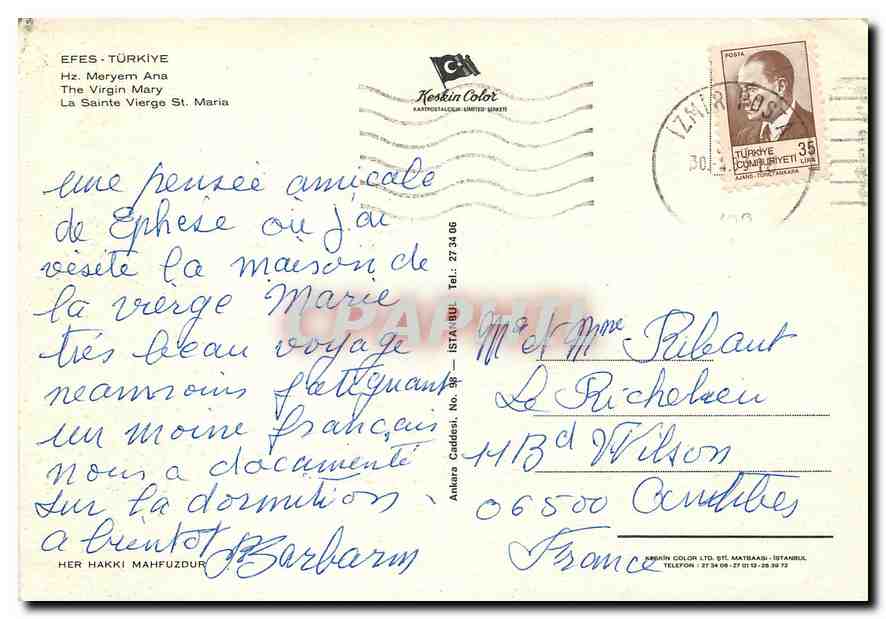 EFES - TÜRKİYE
Hz. Meryem Ana
The Virgin Mary
La Sainte Vierge St. Maria
Keskin Color
KARTPOSTALCILIK LIMITED ŞIRKETI
POSTA
TÜRKİYE
CUMHURİYETİ
35
LİRA
AJANS-TÜRK/ANKARA
İZMİR POS
30.
une pensée amicale
de Ephèse où j'ai
visité la maison de
la vierge Marie
très beau voyage
neammoins fatiguant
un moine français
nous a documenté
sur la dormition.
a bientot
HER HAKKI MAHFUZDUR
Ankara Caddesi, No. 98 — İSTANBUL Tel.: 27 34 06
CPAPHIL
Mr et Mme Ribaut
Le Richelieu
11 Bd Wilson
06500 Antibes
France
KESKIN COLOR LTD. ŞTİ. MATBAASI - İSTANBUL
TELEFON : 27 34 06 - 27 01 12 - 26 39 72